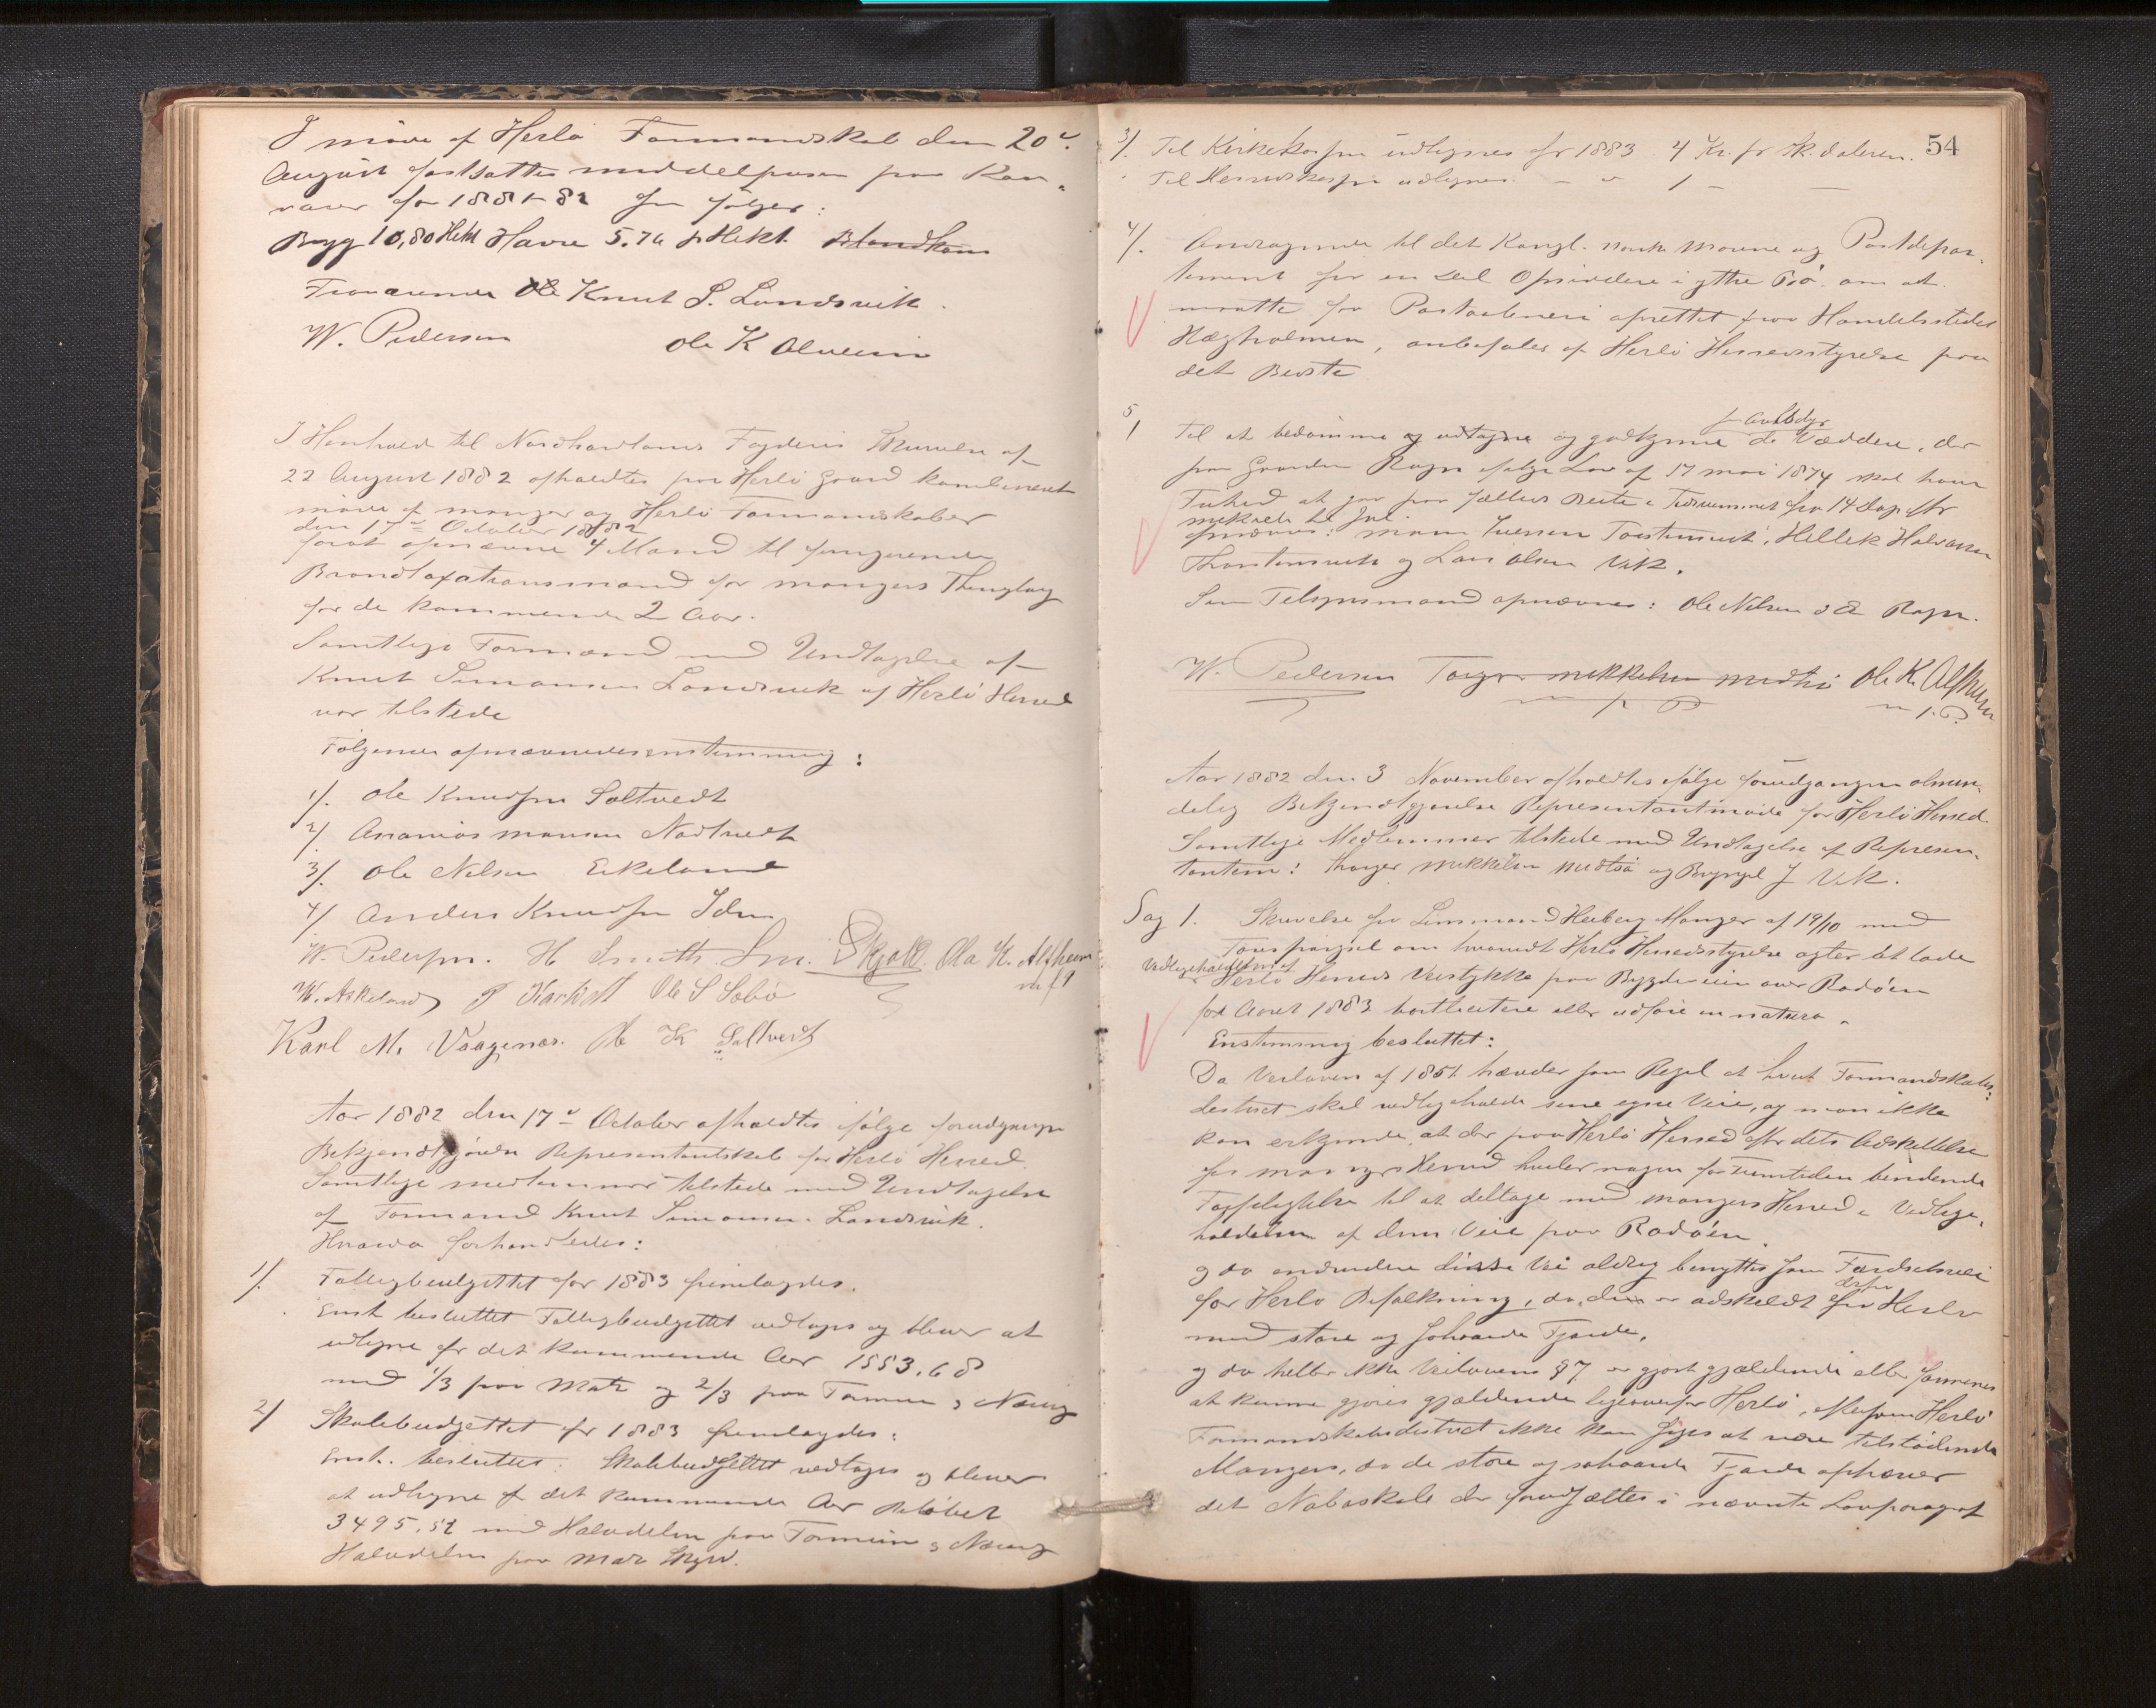 I møde af Herlø Formandskab den 20de
August fastsattes middelprisen paa Kor-
varer for 1881-82 som følger:
Byg 10,80 Hekt Havre 5.76 pr Hekt. Blandkorn
Fraværende Ole Knut S. Landsvik.
W. Pedersen Ole K Alveim
I Henhold til Nordhordlands Fogderis Skrivelse af
22 August 1882 afholdtes paa Herlø Gaard kombineret
møde af Manger og Herlø Formandskaber
den 17de October 1882
forat opnævne 4 Mand til fungerende
Brandtaxationsmænd for Mangers Thinglag
for de kommende 2 Aar.
Samtlige Formænd med Undtagelse af
Knut Simonsen Landsvik af Herlø Herred
var tilstede
Følgende opnævnedes enstemmig:
1/. Ole Knudsen Soltvedt
2/. Ananias Monsen Nodtvedt
3/. Ole Nilsen Eikeland
4/ Anders Knudsen Iden
W. Pedersen. H Smith Sm. Skjold. Ola K. Alfheim
m f P
W. Askeland P Ole S Sæbø
Karl M. Vaagenæs. Ole K Soltvedt
Aar 1882 den 17de October afholdtes ifølge forudgangen
Bekjendtgjørelse Representantskab for Herlø Herred
Samtlige medlemmer tilstede med Undtagelse
af Formand Knut Simonsen Landsvik.
Hvorda forhandledes:
1/. Fattigbudgettet for 1883 fremlagdes.
Enst besluttet Fattigbudgettet vedtages og bliver at
udligne for det kommende Aar 1553.68
med 1/3 paa Matr og 2/3 paa Formue & Næring
2/ Skolebudgettet for 1883 fremlagdes:
Enst. besluttet: Skolebudgettet vedtages og bliver
at udligne for det kommende Aar Beløbet
3495.52 med Halvdelen paa Formue & Næring
Halvdelen paa Matr Skyld.
54
3/. Til Kirkekassen udlignes for 1883 4 Kr. pr Sk.daleren.
Til Herredskassen udlignes - " 1 - -
4/. Andragende til det Kongl. norske Marine og Postdepar-
tement fra en Del Opsiddere i ytre om at
maatte faa Postaabneri oprettet paa Handelsstedet
Hægholmen, anbefales af Herlø Herredsstyrelse paa
det Bedste
5/ Til at bedømme og udtagne og godkjenne de Væddere, der
som Avlsdyr
paa Gaarden Rogn ifølge Lov af 17 mai 1874 skal have
Frihed at gaa paa fælleds Beite i Tidsrummet fra 14 Dage før
mikkels til Jul.
opnævnes: Mons Iversen Torstensvik, Hellek Halvorsen
Thorstensvik og Lars Olsen Vik.
Som Tilsynsmand opnævnes: Ole Nilsen Rogn.
W. Pedersen Torger Mikkelsen Midtsø Ole K. Alfheim
m p P m f. P.
Aar 1882 den 3 November afholdtes ifølge forudgangen almin-
delig Bekjendtgjørelse Representantmøde for Herlø Herred.
Samtlige Medlemmer tilstede med Undtagelse af Represen-
tantene: Thorger Mikkelsen Midtsø og Brynjel J Vik.
Sag 1. Skrivelse fra Lensmand Heiberg Manger af 19/10 med
Forespørgsel om hvorvidt Herlø Herredsstyrelse agter at lade
Vedligeholdelsen af
Herlø Herreds Veistykke paa Bygdeveien over Radøen
for Aaret 1883 bortlicitere eller udføre in natura.
Enstemmig besluttet:
Da Veiloven af 1851 hævder som Regel at hvert Formandskabs-
destrict skal vedligeholde sine egne Veie, og man ikke
kan erkjende, at der paa Herlø Herred efter dets Adskillelse
fra Mangers Herred hviler nogen for Fremtiden bindende
Forpligtelse til at deltage med Mangers Herred i Vedlige-
holdelsen af dens Veie paa Radøen.
og da endvidere disse Vei aldrig benyttes som Færdselsvei
for Herlø Befolkning, da den er adskildt fra Herlø
derfra
med store og sohaarde Fjorde.
og da heller ikke Veilovens § 7 er gjort gjældende eller formenes
at kunne gjøres gjældende ligeoverfor Herlø, eftersom Herlø
Formandskabsdistrict ikke kan siges at være tilstødende
Mangers, da de store og sohaarde Fjorde ophæver
det Naboskab der forudsættes i nævnte Lovparagraf